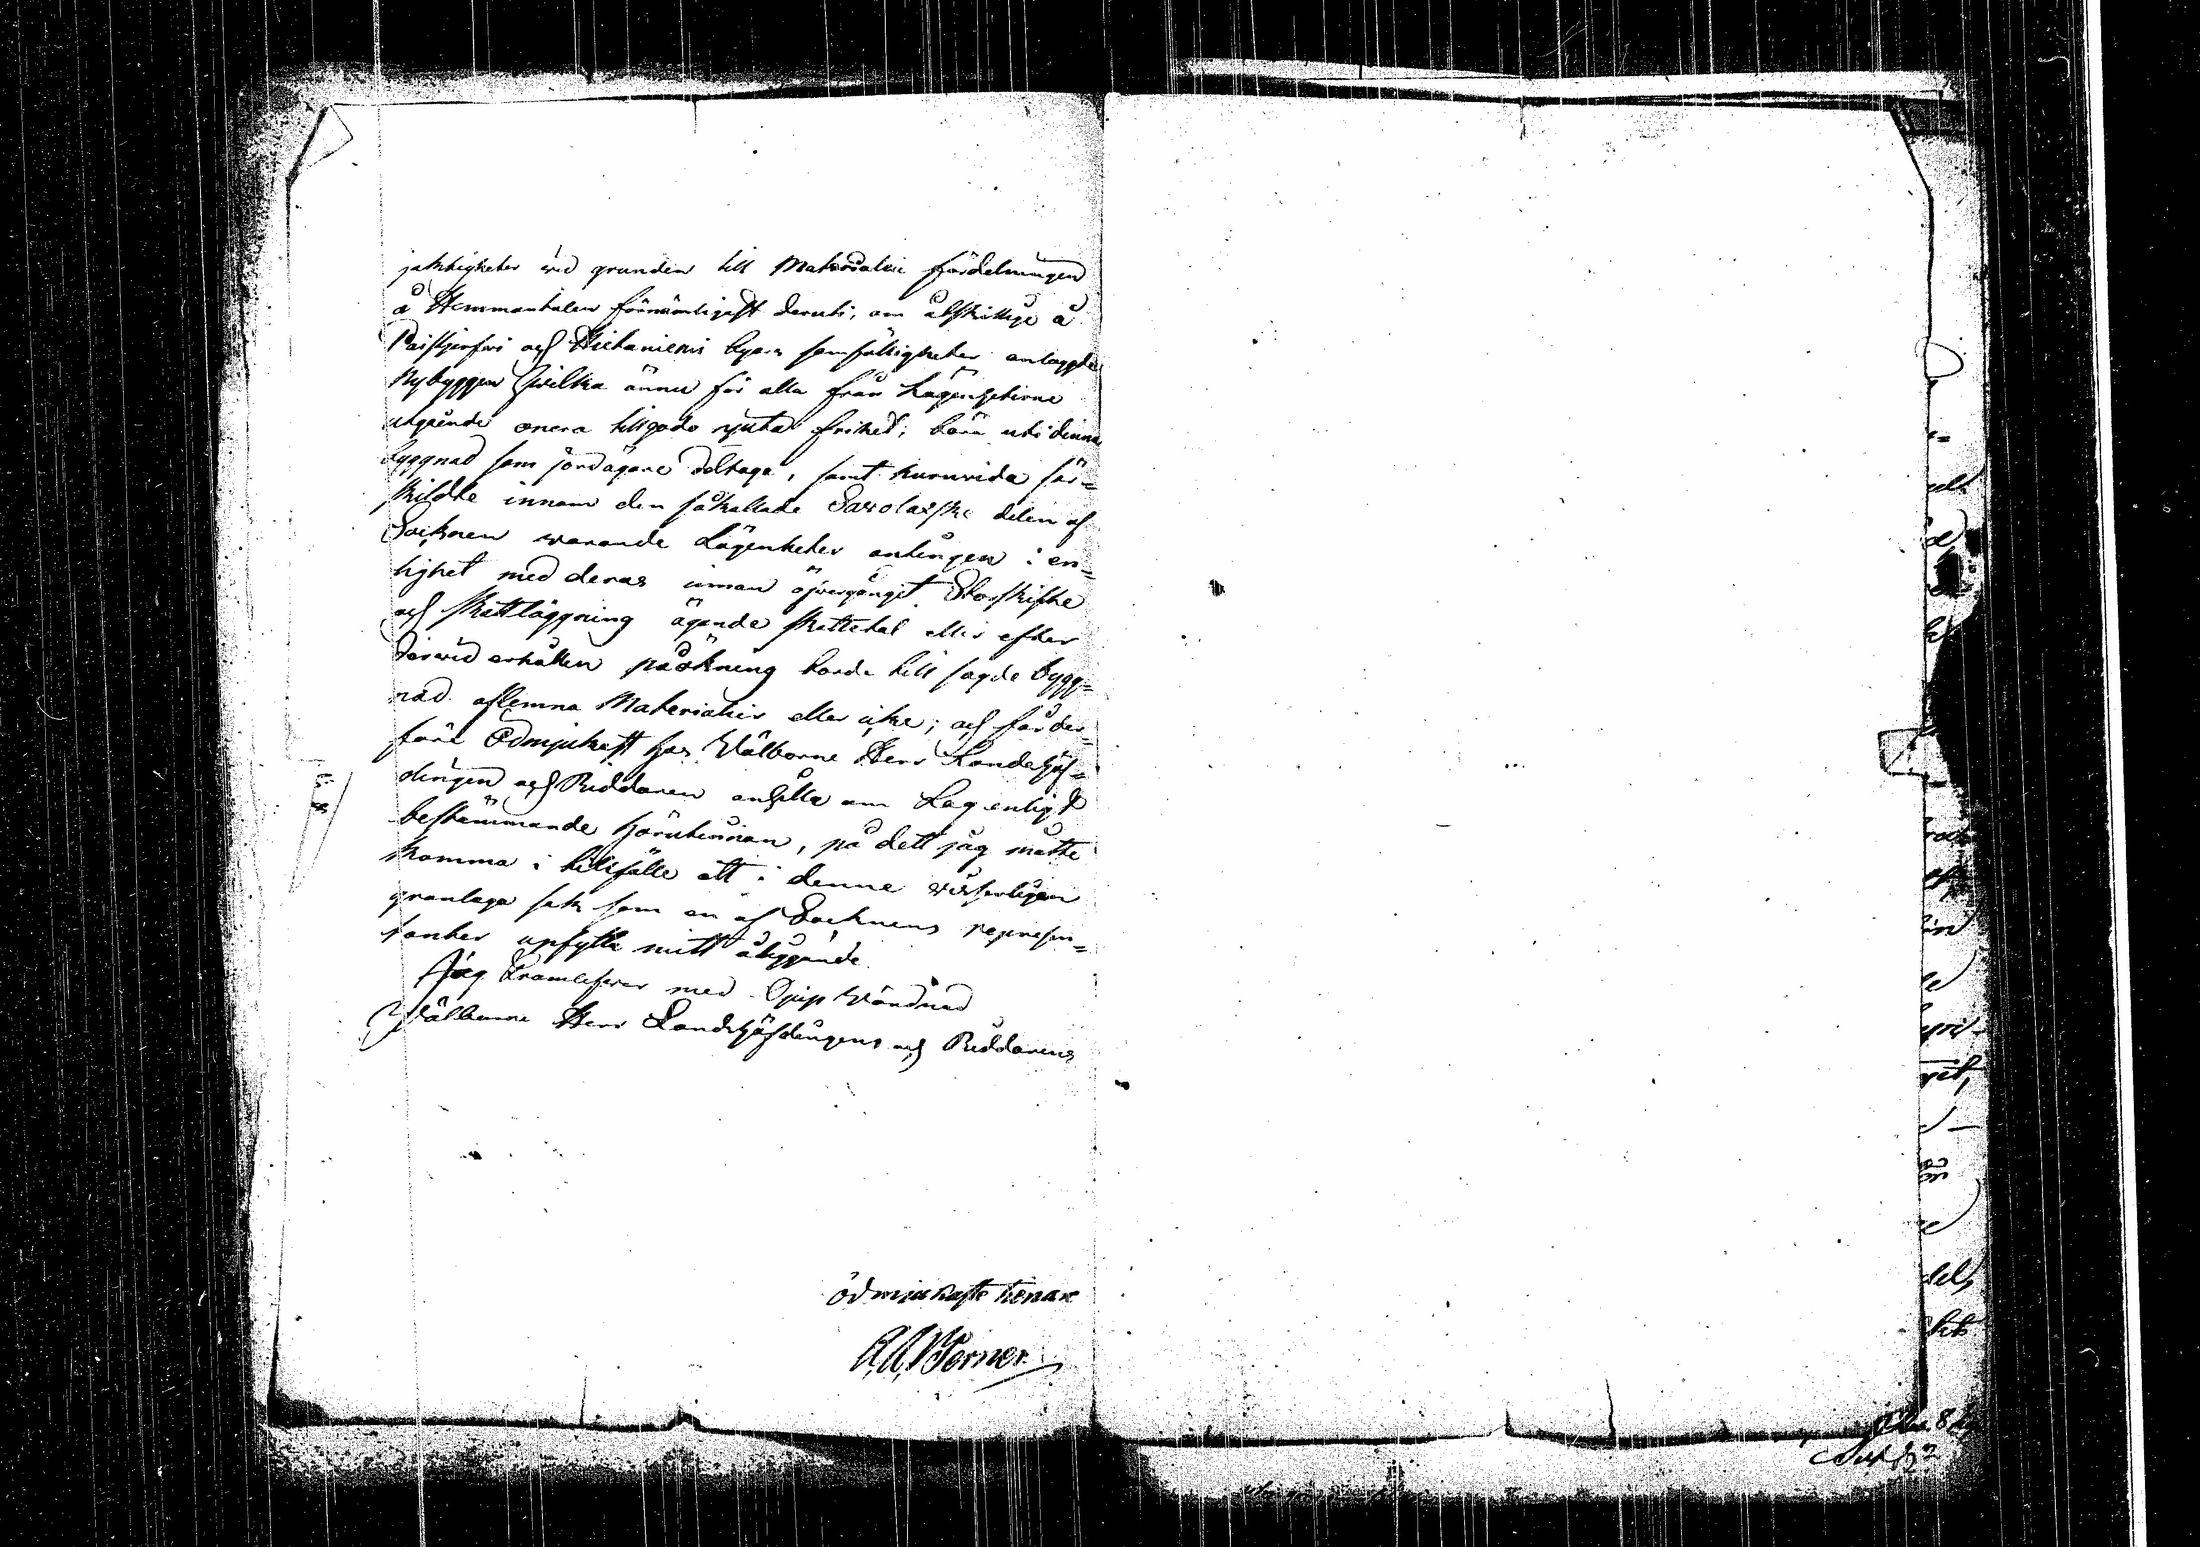 jaktigheter wid grunden till Materialie fördelningen
å Hemmantalen förnämligast deruti, om åtskillige å
Paistjerfwi och Hietaniemi byars samfälligheter anlaggde
Nybyggen hwilka ännu för alla från Lägenheterne
utgående onera tillgodo njuta frihet, böra uti denna
byggnad som jordägare deltaga, samt huruvida sär=
skildte innom den såkallade Sawolaxske delen af
Socknen warande Lägenheter antingen i en=
lighet med deras innan öfvergånget Storskifte
och skattläggning ägande skattetal eller efter
derwid erhållen påökning borde till sagde bygg=
nad aflemna Materialier eller icke; och får der=
före Ödmjukast hos Välborne Herr Landshöf=
dingen och Riddaren anhålla om Lagenligt
bestämmande härutinnan, på dett jag måtte
komma i tillfälle att i denne
granlaga sak som en af Socknens represen=
tanter upfylla mitt åliggande.
Jag Framlefwer med Djup Wördnad
Välborne Herr Landshöfdingens och Riddarens
ödmjukaste tienare
A. A. Werner